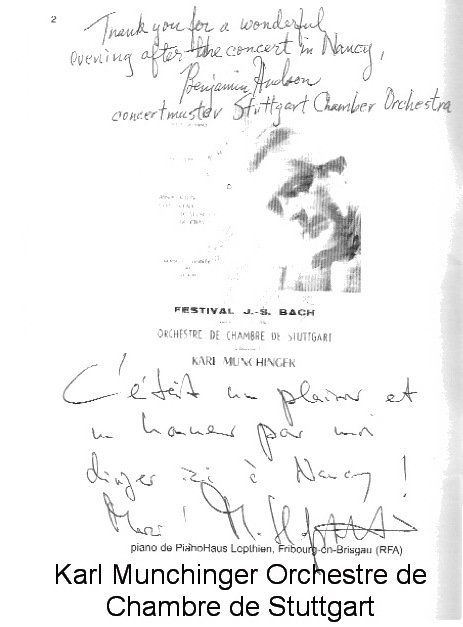 2
Thank you for a wonderful
evening after the concert in Nancy,
Benjamin Hudson
concertmaster Stuttgart Chamber Orchestra
FESTIVAL J.-S. BACH
ORCHESTRE DE CHAMBRE DE STUTTGART
KARL MUNCHINGER
C'était un plaisir et
un honneur par moi
diriger ici à Nancy !
Merci !
piano de PianoHaus Lopthien, Fribourg-en-Brisgau (RFA)
Karl Munchinger Orchestre de
Chambre de Stuttgart